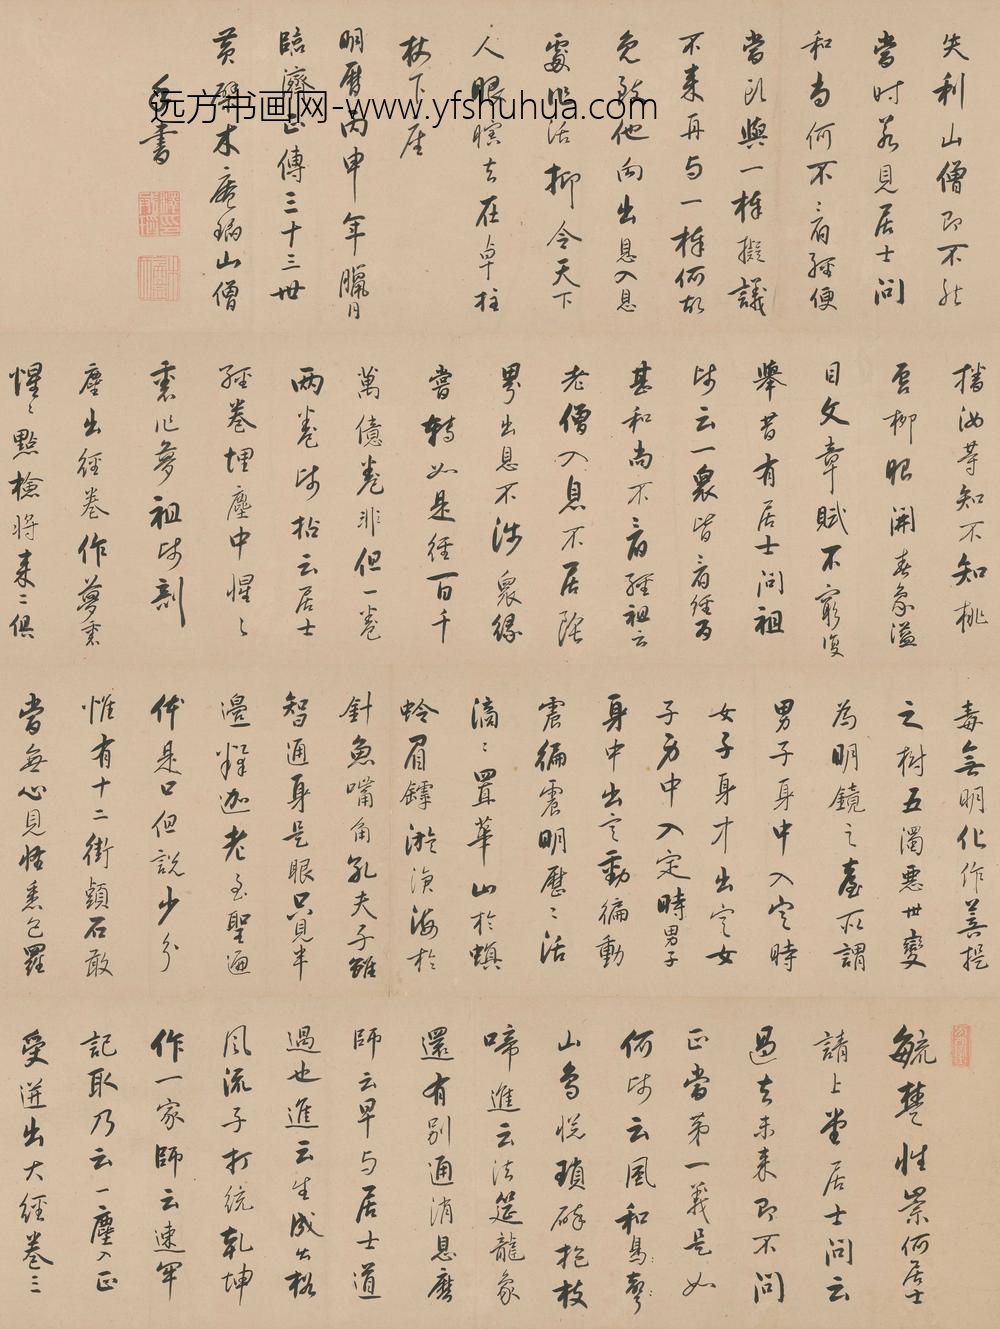 毓楚性崇何居士
請上堂居士問云
過去未來即不問
正當第一義是如
何師云風和鳥聲
山鳥悅瑣碎抱枝
啼進云法筵龍象
還有別通消息麼
師云早与居士道
過也進云生成出格
風流子打統乾坤
作一家師云速牢
記取乃云一塵入正
受迸出大經卷三
毒無明化作菩提
之樹五濁惡世變
為明鏡之臺所謂
男子身中入定時
女子身中出定女
子身中入定時男子
身中出定動徧動
震徧震明歷歷活
滴滴置華山於螟
蛉眉鐸游演海於
針魚嘴角孔夫子雖
智通身是眼只見半
邊釋迦老至聖遍
体是口但說少分
惟有十二街頭石敢
當無心見悟悉包羅
播汝等知不知桃
唇柳眼開春象溢
目文章賦不窮復
舉昔有居士問祖
師云一眾皆看經為
甚和尚不看經祖云
老僧入息不居陰
界出息不涉眾緣
嘗轉如是經百千
萬億卷非但一卷
兩卷師拈云居士
經卷埋塵中惺惺
裏作夢祖師剖
塵出經卷作夢裏
惺惺點檢將來二俱
失利山僧即不然
當時若見居士問
和尚何不看經便
當頭與一棒擬議
不來再与一棒何故
免教他向出息入息
處作活抑令天下
人眼瞎去在卓柱
杖下座
明曆丙申年臘月
臨濟正傳三十三世
黃檗木菴瑫山僧
手書
远方书画网-www.yfshuhua.com